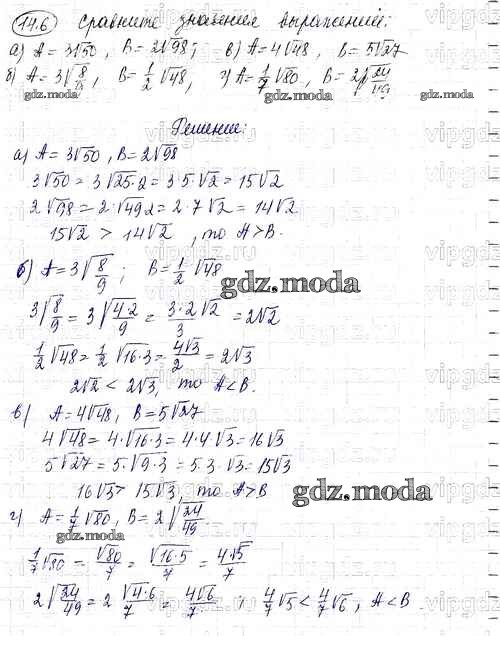 14.6 Сравните значения выражений:
а) A = 3√50, B = 2√98; в) A = 4√48, B = 5√27
б) A = 3√(8/9), B = 1/2 √48, г) A = 1/7 √80, B = 2√(24/49)
gdz.moda gdz.moda gdz.moda
Решение:
а) A = 3√50, B = 2√98
3√50 = 3√25·2 = 3·5·√2 = 15√2
2√98 = 2·√49·2 = 2·7√2 = 14√2
15√2 > 14√2, то A > B.
б) A = 3√(8/9); B = 1/2 √48
gdz.moda
3√(8/9) = 3√(4·2/9) = 3·2√2/3 = 2√2
1/2 √48 = 1/2 √16·3 = 4√3/2 = 2√3
2√2 < 2√3, то A < B.
в) A = 4√48, B = 5√27
4√48 = 4·√16·3 = 4·4√3 = 16√3
5√27 = 5·√9·3 = 5·3·√3 = 15√3
16√3 > 15√3, то A > B
gdz.moda
г) A = 1/7 √80, B = 2√(24/49)
1/7 √80 = √80/7 = √16·5/7 = 4√5/7
2√(24/49) = 2 √4·6/7 = 4√6/7 ; 4/7 √5 < 4/7 √6, A < B
gdz.moda